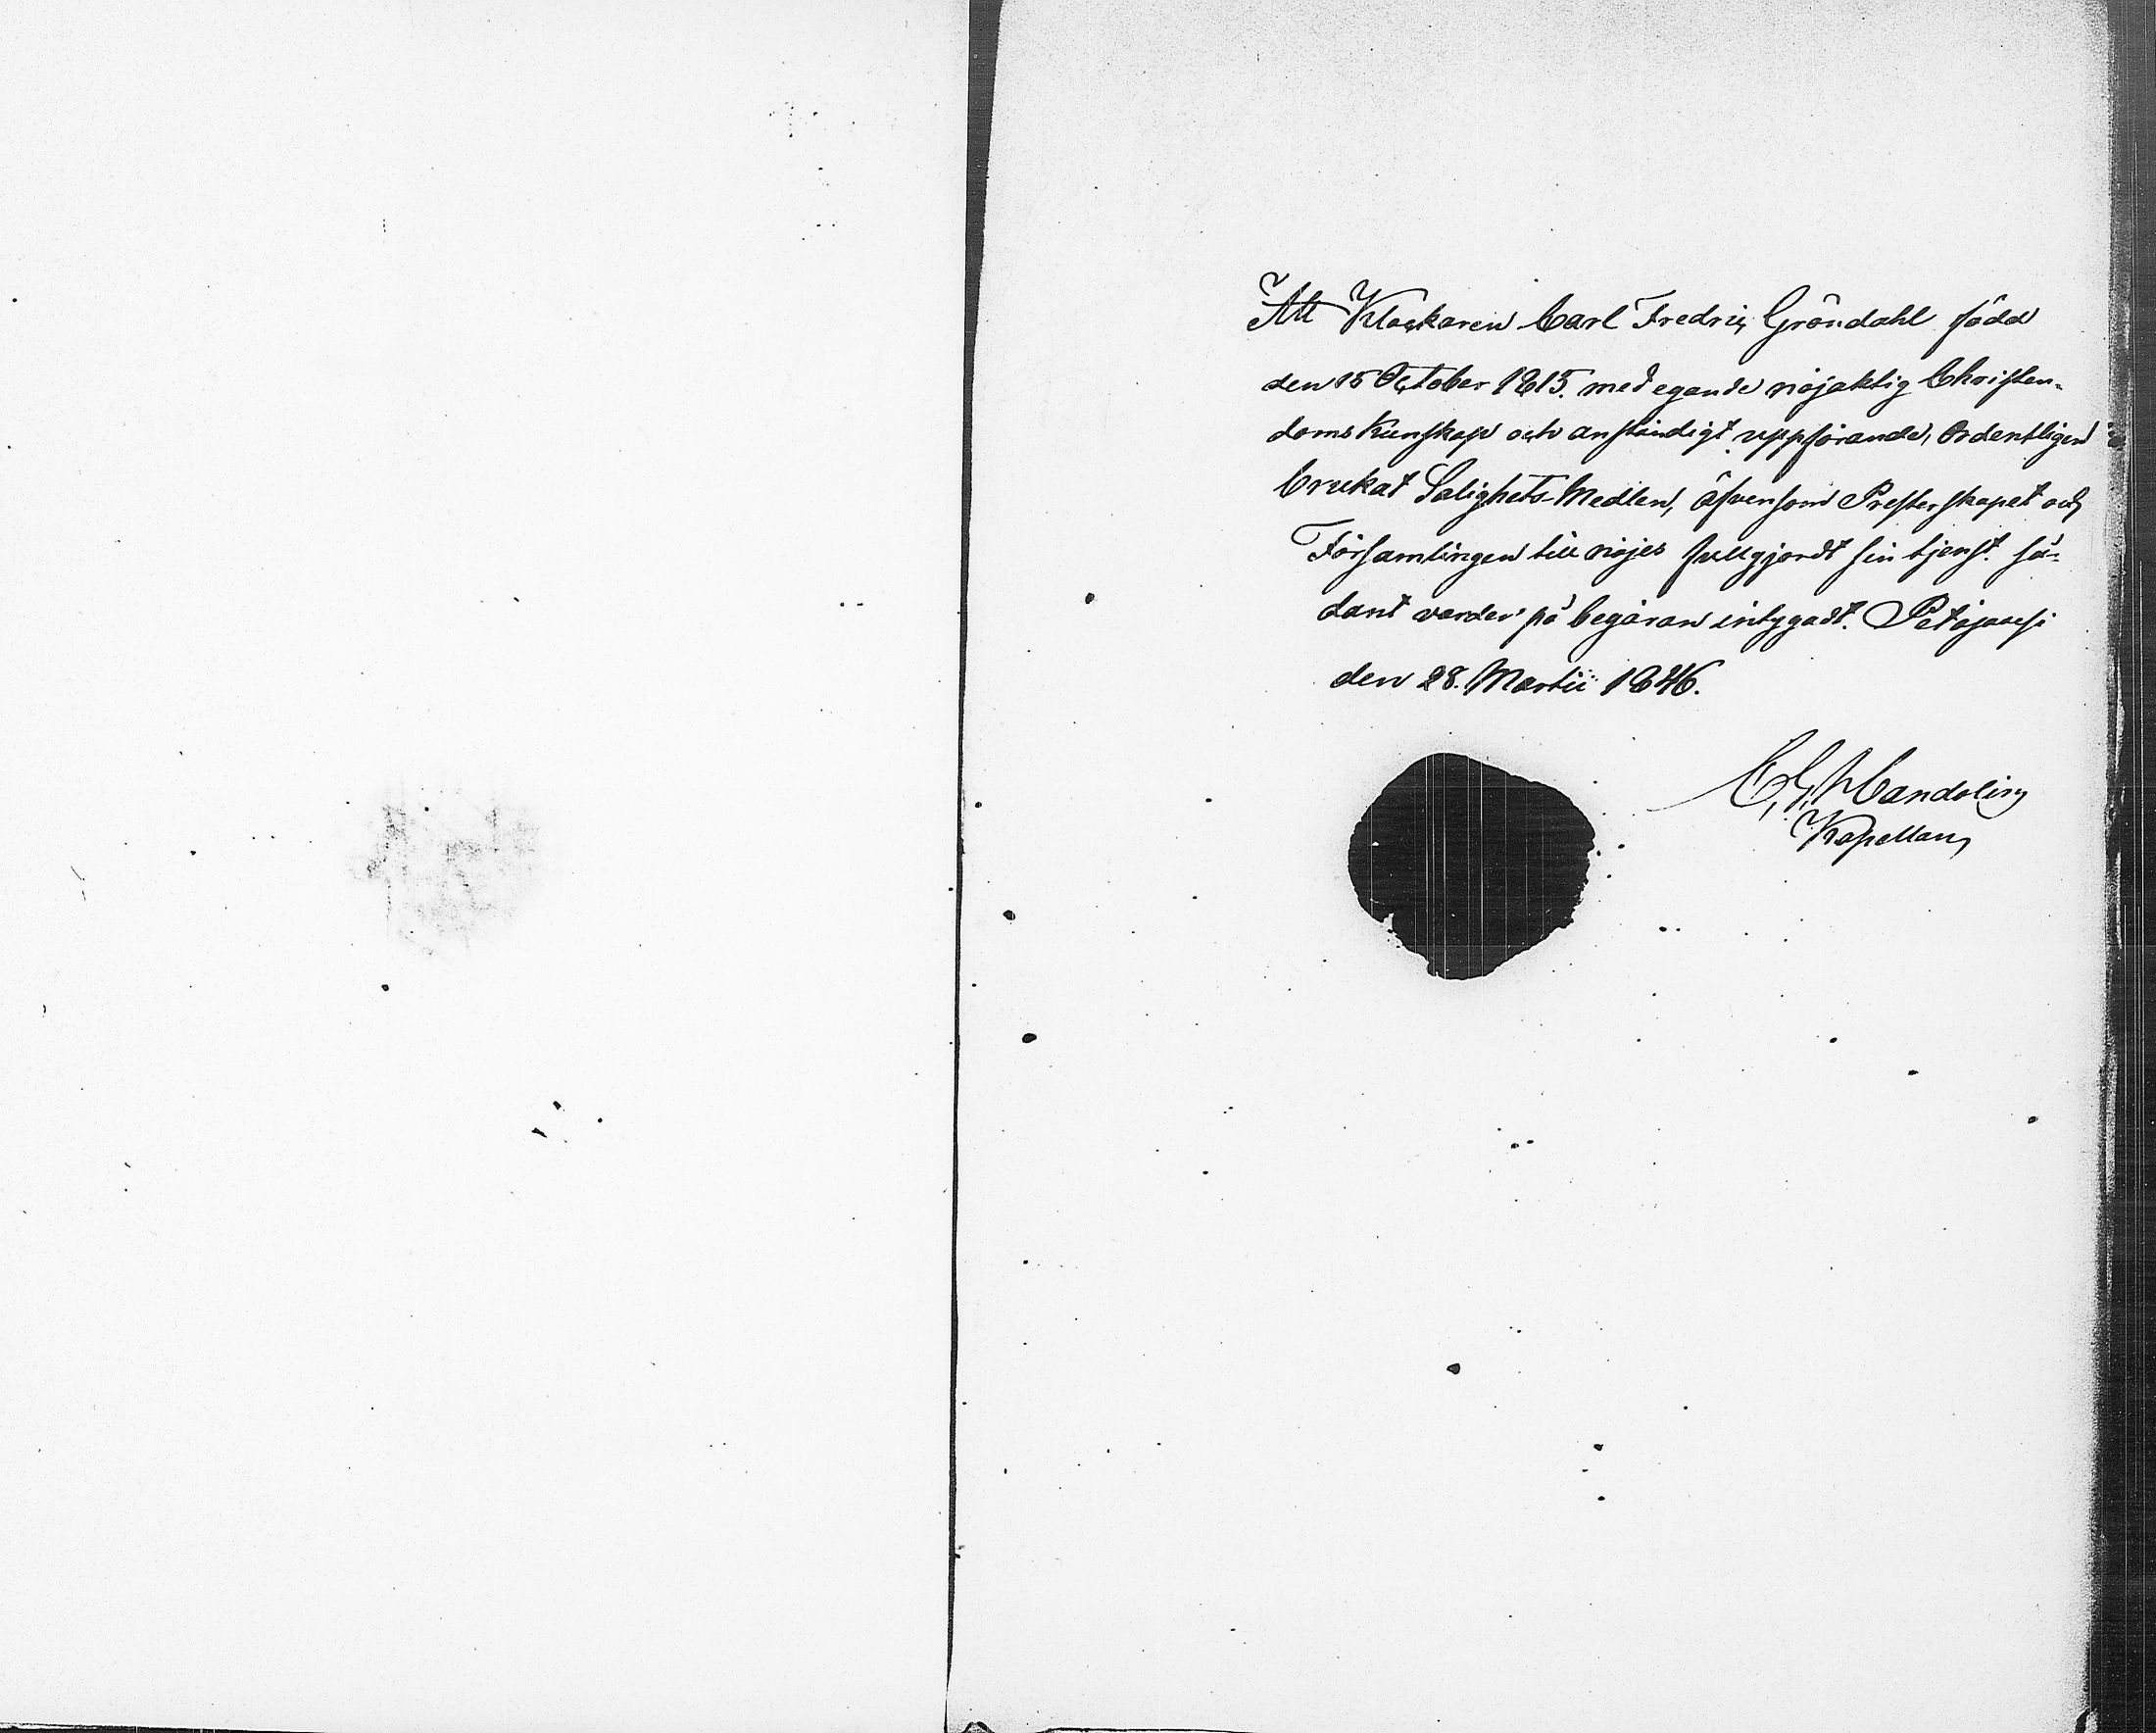 Att Klockaren Carl Fredric Gröndahl född
den 15 October 1815. med egande nöjaktig Christen-
doms Kunskap och anständigt uppförande, Ordentligen
brukat Salighets-Medlen, äfvensom Presterskapet och
Församlingen till nöjes fullgjordt sin tjenst. Så-
dant varder på begäran intygadt. Petäjävesi
den 28. Martii 1846.
Kapellan